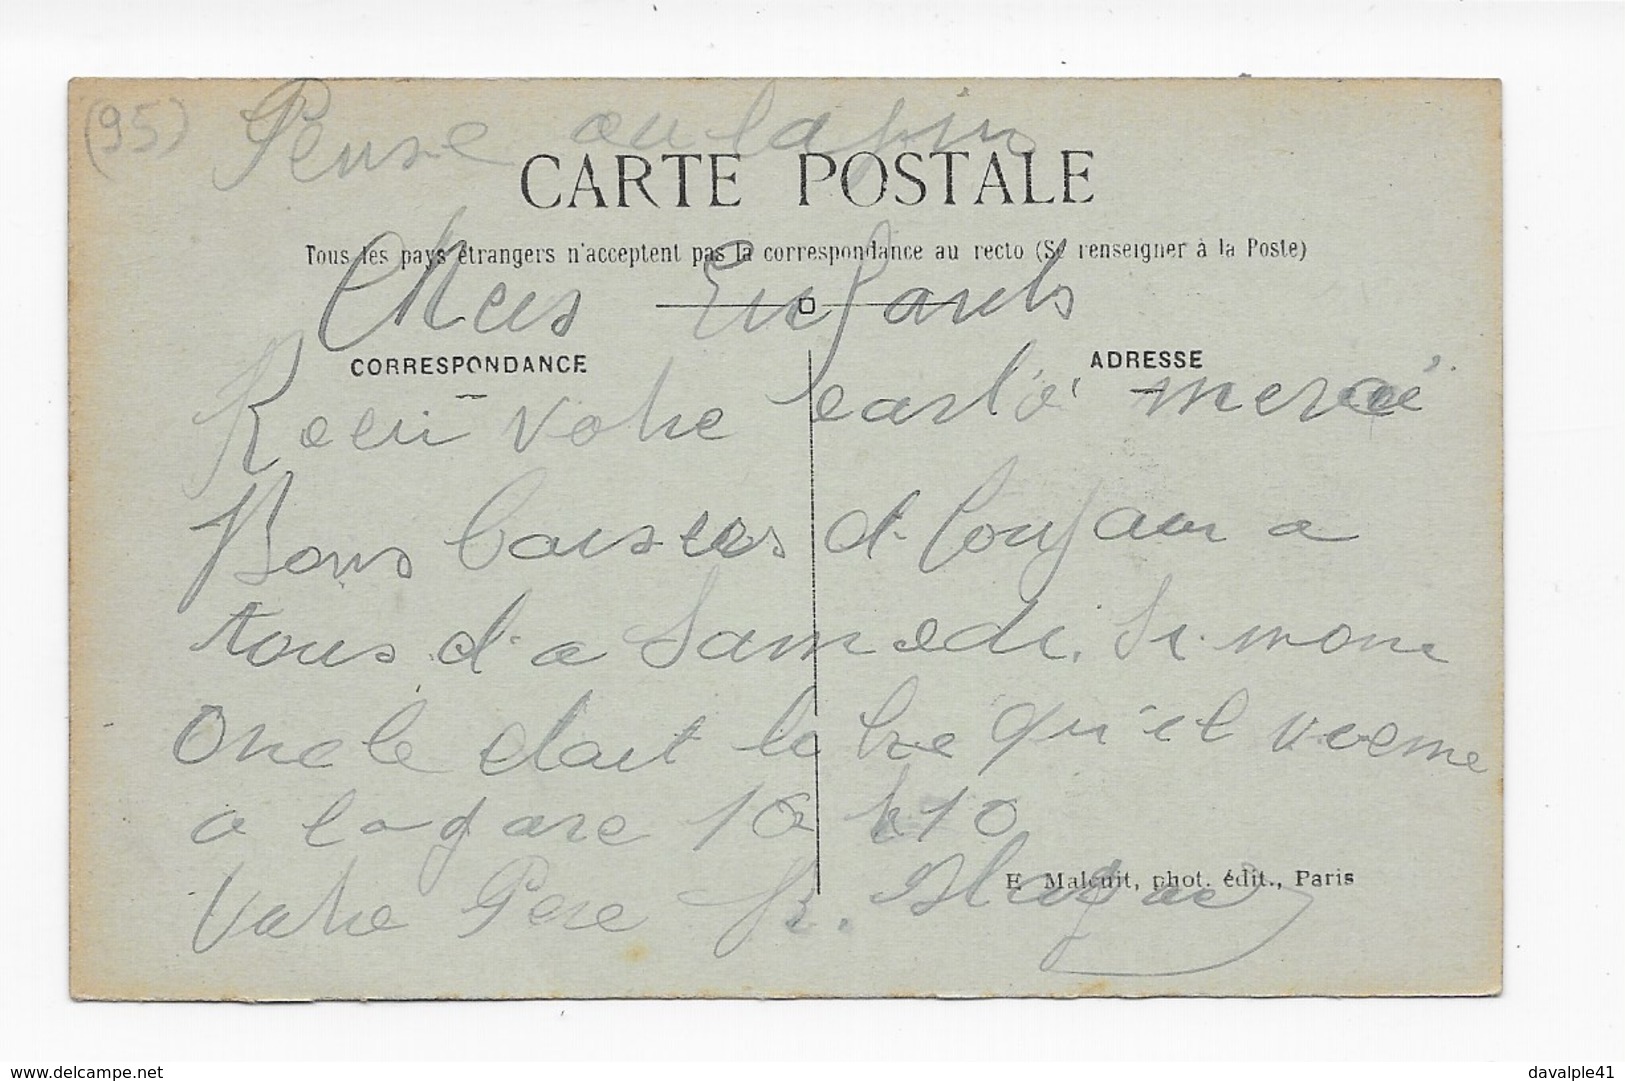 (95) Pense au lapin
CARTE POSTALE
Tous les pays étrangers n'acceptent pas la correspondance au recto (Se renseigner à la Poste)
Chers Enfants
CORRESPONDANCE
ADRESSE
Recu votre carte merci
Bons baisers d. Coujour a
tous d. a Samedi. Si mon
Oncle etait libre qu'il vienne
a la gare 10 h 10
Votre Pere
E. Malcuit, phot. édit., Paris
delcampe.net
davalple41